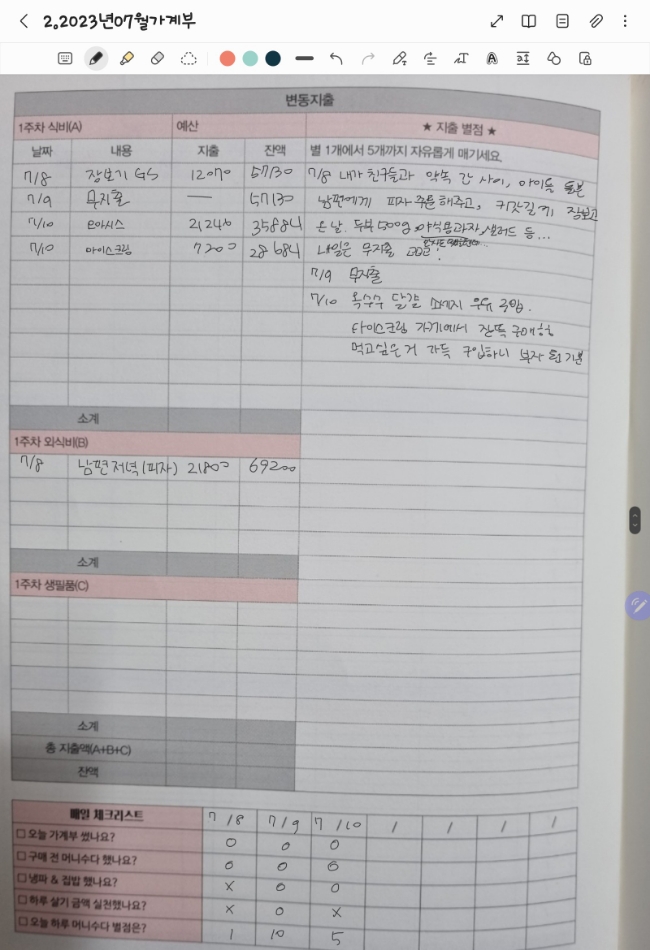 2.2023년07월가계부
변동지출
1주차 식비(A) 예산 ★ 지출 별점 ★
날짜 내용 지출 잔액 별 1개에서 5개까지 자유롭게 매기세요.
7/8 장보기 GS 12070 57130 7/8 내가 친구들과 약속 간 사이, 아이들 돌본
7/9 무지출 — 57130 남편에게 피자 주문해주고, 귀갓길에 장보고
7/10 오아시스 21246 35884 온 날. 두부 500g, 야식용과자, 샐러드 등...
7/10 아이스크림 7200 28684 내일은 무지출 고고!
7/9 무지출
7/10 옥수수 달걀 소세지 우유 구입.
아이스크림 가게에서 잔뜩 구매함
먹고싶은거 가득 구입하니 부자 된 기분
소계
1주차 외식비(B)
7/8 남편저녁(피자) 21800 69200
소계
1주차 생필품(C)
소계
총 지출액(A+B+C)
잔액
매일 체크리스트 7/8 7/9 7/10 / / / /
□ 오늘 가계부 썼나요? O O O
□ 구매 전 머니수다 했나요? O O O
□ 냉파 & 집밥 했나요? X O O
□ 하루 살기 금액 실천했나요? X O X
□ 오늘 하루 머니수다 별점은? 1 10 5